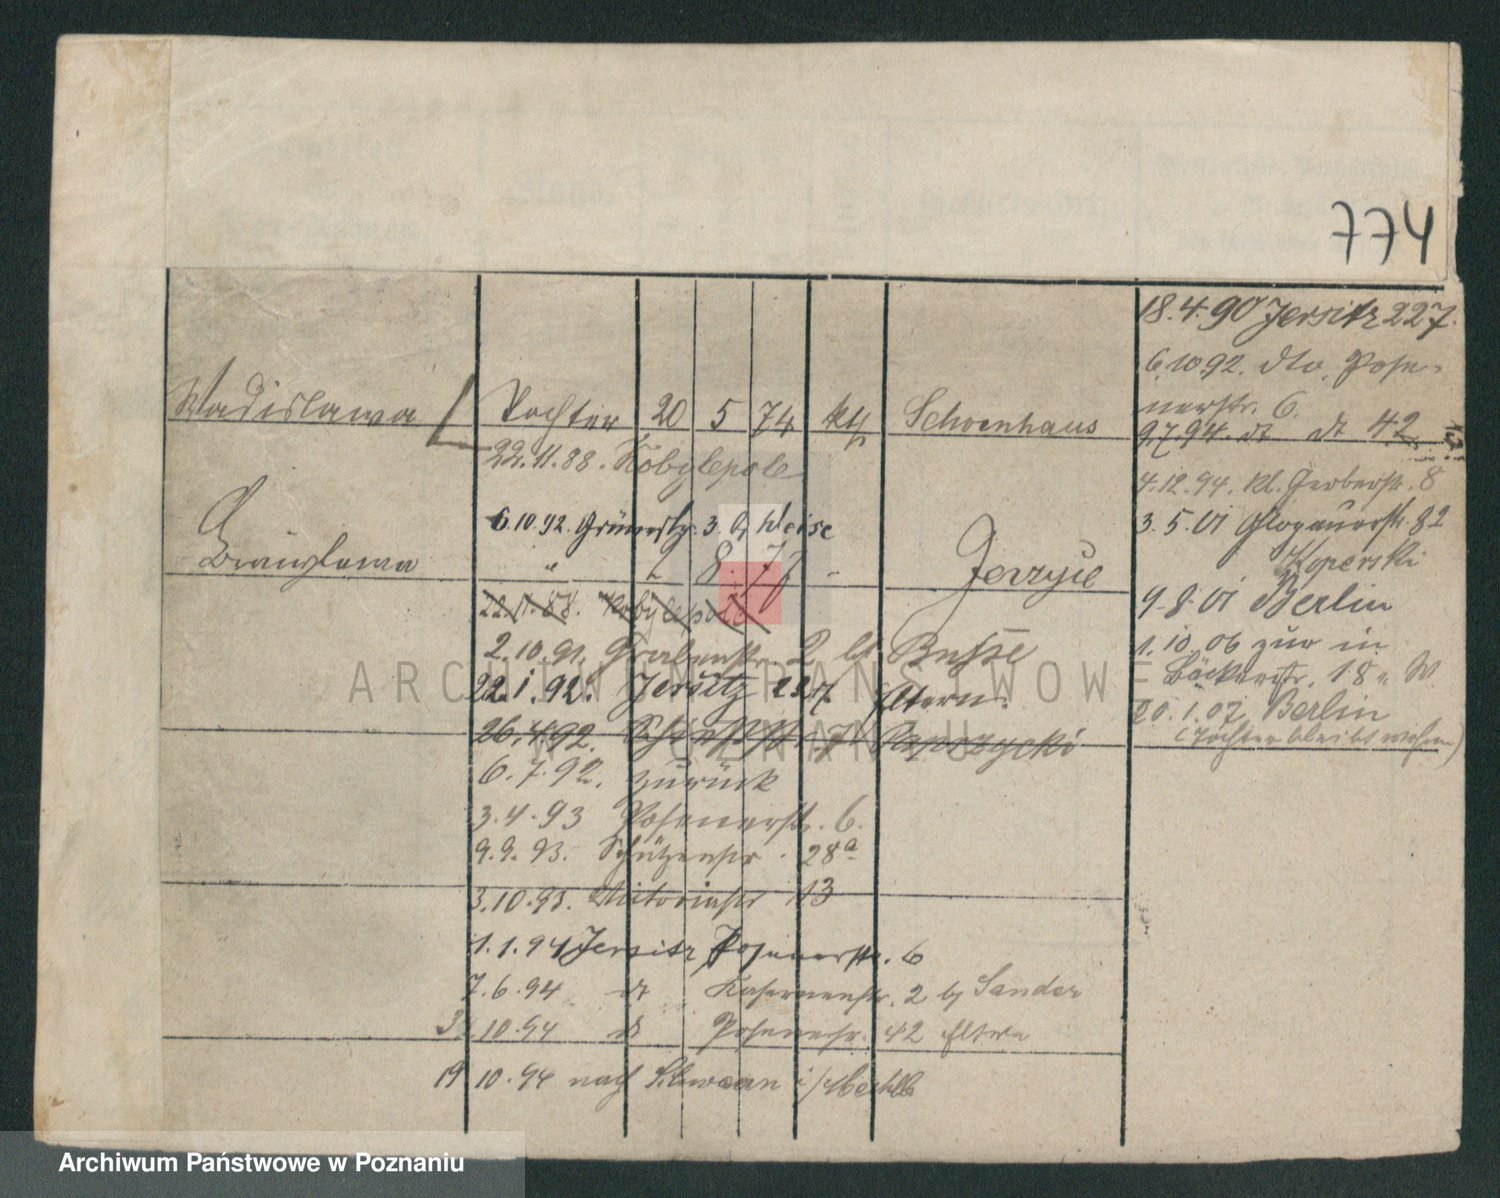 774
18.4.90 Jersitz 227.
6.10 92. dto. Pose-
nerstr. 6.
Wadislawa Tochter 20 5 74 kth Schoenhaus
9.7.94. dt dt 42
22.11.88. Kobylepole
4.12.94. kl. Gerberstr. 8
6.10.92. Grünestr. 3. b/ Weise
3.5.01 Glogauerstr. 82
Koperski
Bronislawa " " 8 77 - Jerzyce
22.11.88. Kobylepole
9.8.01 Berlin
2.10.91. Grabenstr. 2 b/ Busse
1.10.06 zur in
Bäckerstr. 18
22.1.92. Jersitz 227. Eltern.
20.1.07 Berlin
(Tochter bleibt wohnen)
26.4.92. 7 Paprzycki
6.7.92. zurück
3.4.93 Posenerstr. 6.
9.9.93. Schützenstr. 28a
3.10.93. Victoriastr 13
1.1.94 Jersitz Posenerstr. 6
7.6.94 dt Kasernenstr. 2 by Sander
3. 10.94 dt Posenerstr. 42 Eltern
19 10.94 nach Schwaan i/Mecklb
ARCHIWUM PAŃSTWOWE
W POZNANIU
Archiwum Państwowe w Poznaniu